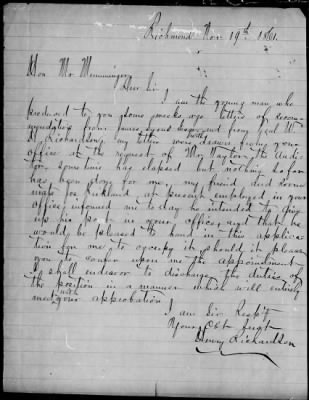 Richmond Nov 19th 1861.
Hon Mr Memminger
Dear Sir,
I am the young man who
produced to you some weeks ago letters of recom-
mendation from James Lyons Esqr and from Genl W
H Richardson, my letters were drawn from your
office at the request of Mr Taylor, the Audi-
tor, sometime has elapsed but nothing so far
has been done for me, my friend and room
mate Jos at present employed in your
office, informed me to day he intended to give
up his post in your office, and that he
would be pleased to hand in this applica-
tion for me to occupy it, should it please
you to confer upon me the appointment
I shall endeavor to discharge the duties of
the position in a manner which will entirely
meet with your approbation
I am Sir Resp'f
Your Obt Servt
Henry Richardson